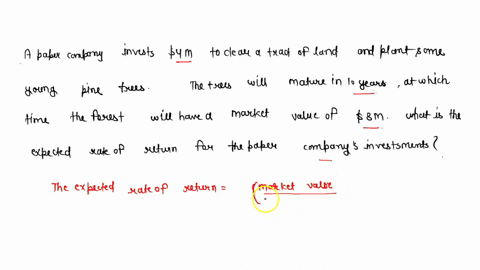 A paper company invests $4M to clear a tract of land and plant some
young pine trees. The trees will mature in 10 years, at which
time the forest will have a market value of $8M. what is the
expected rate of return for the paper company's investsments?
The expected rate of return = (market value